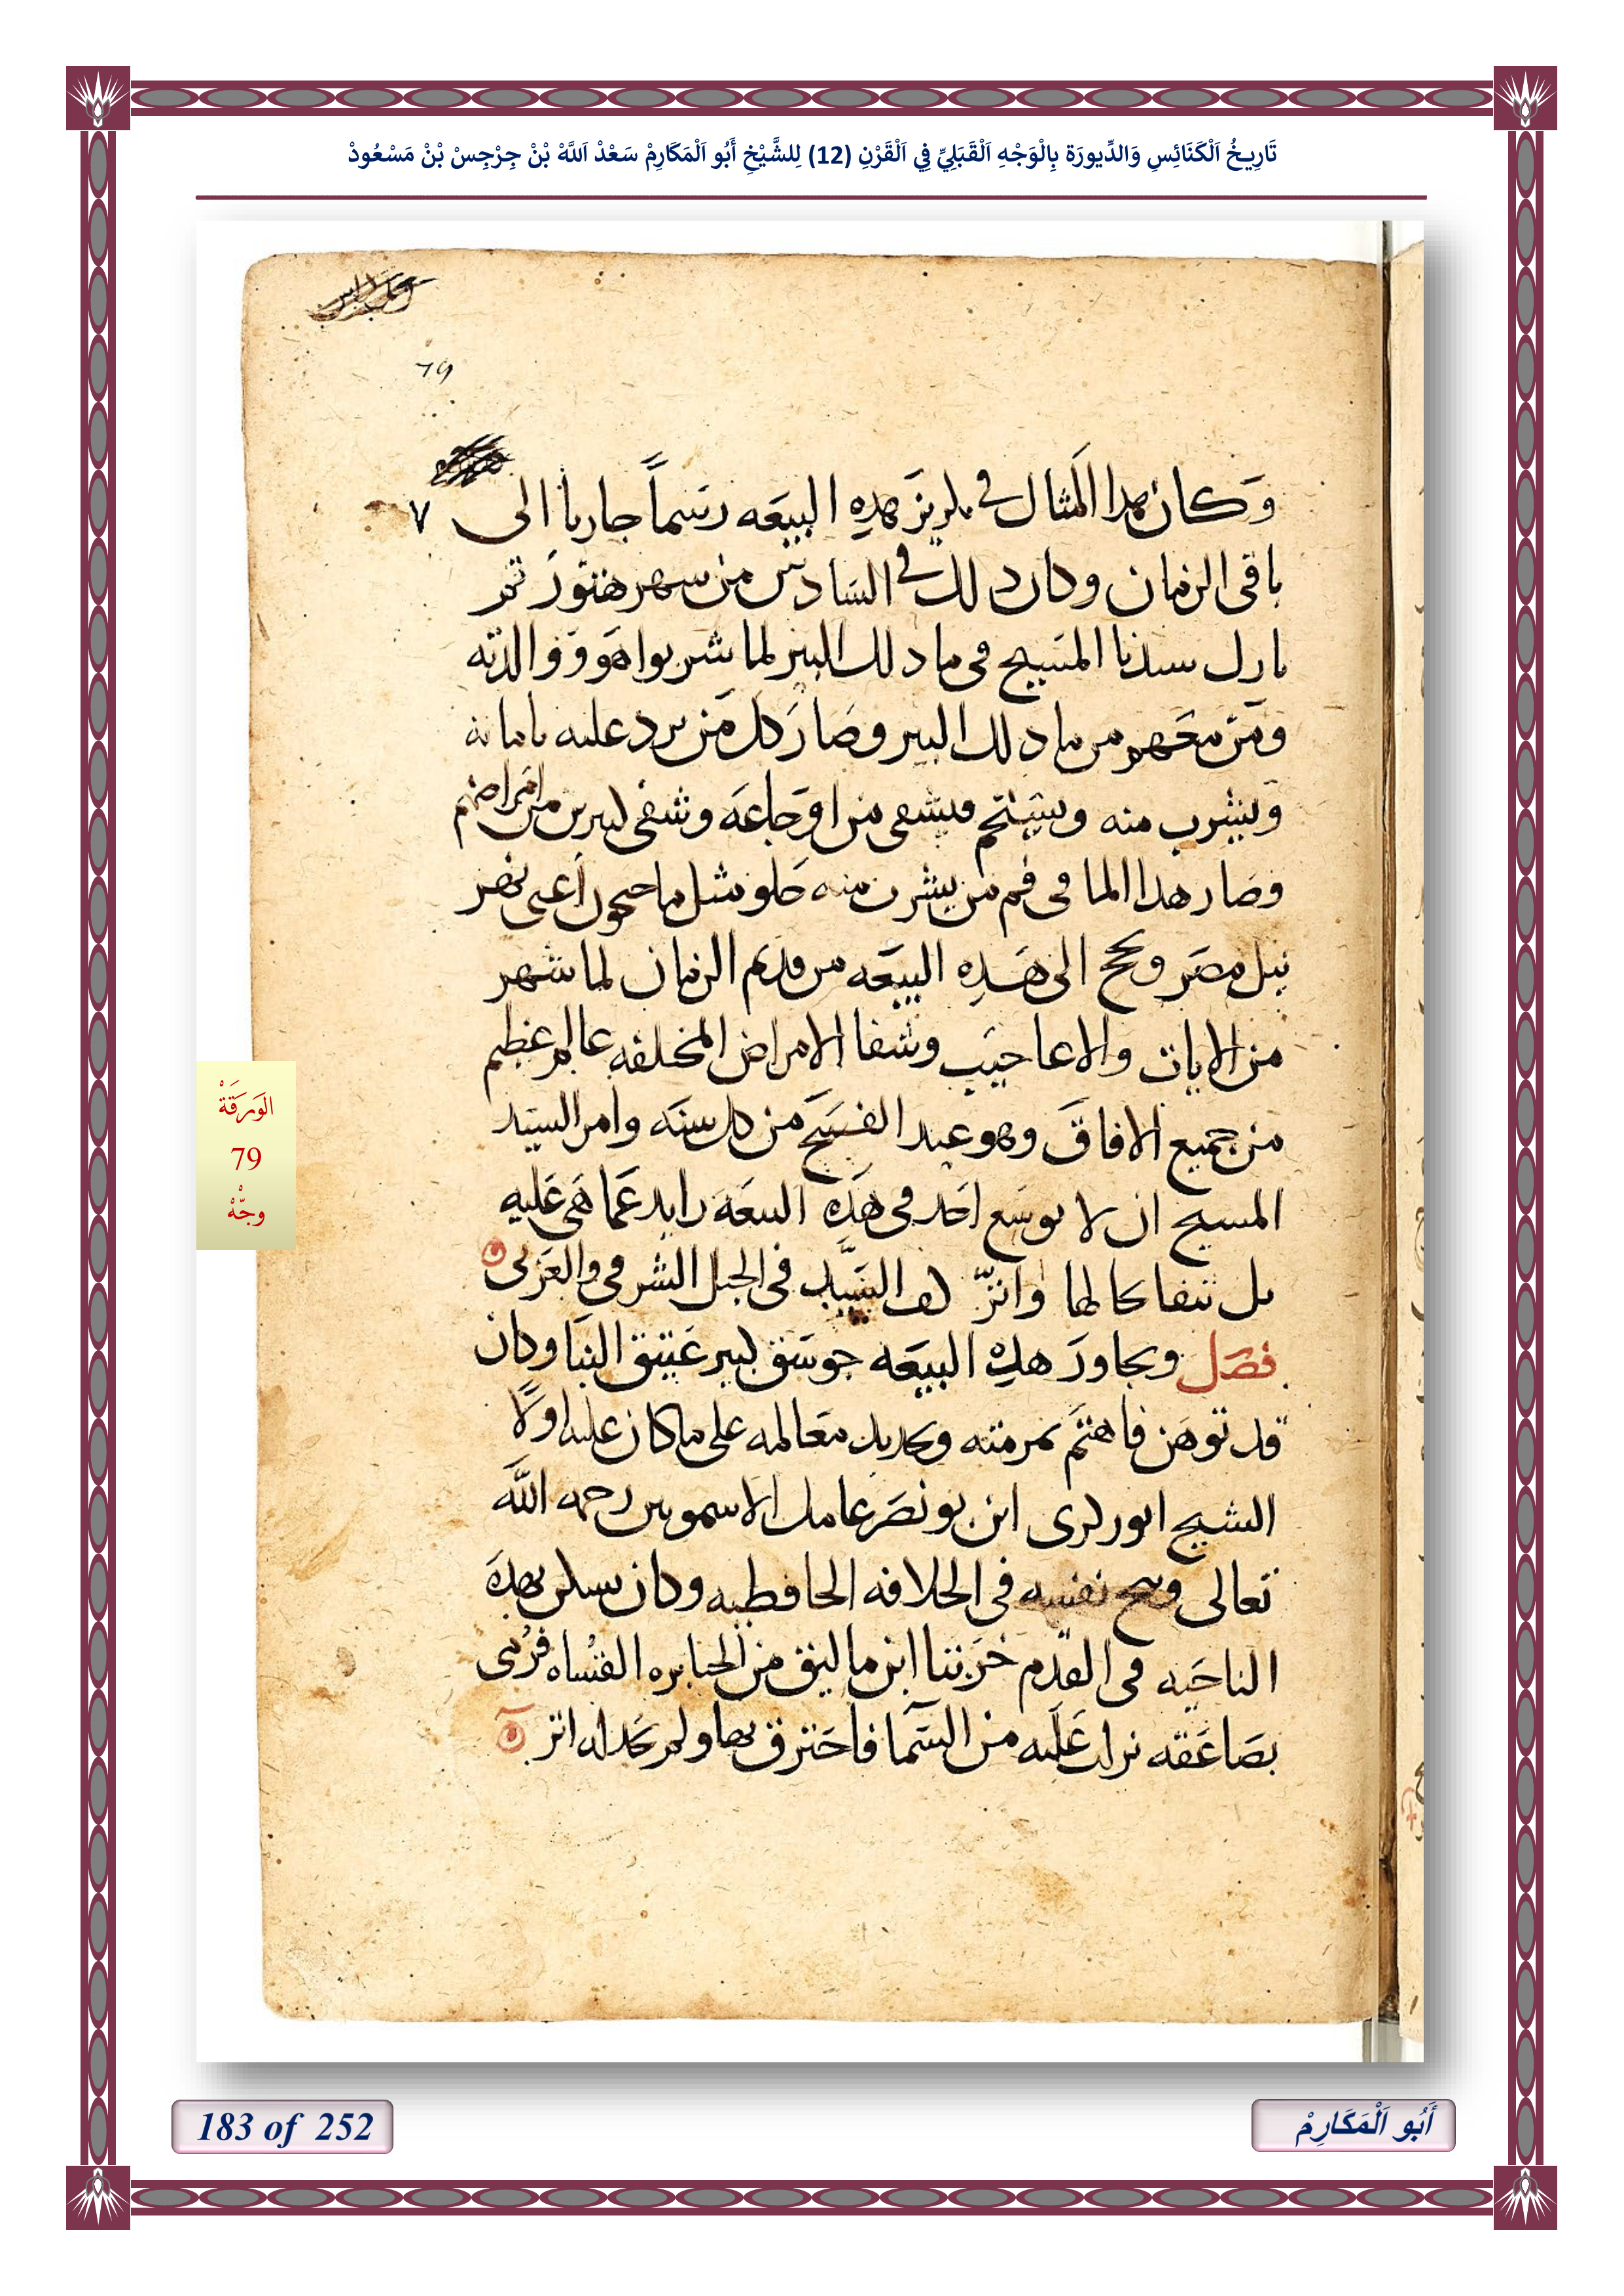 تَارِيخُ اَلْكَنَائِسِ وَالدِّيورَة بِالْوَجْهِ اَلْقَبَلِيِّ فِي اَلْقَرْنِ (12) لِلشَّيْخِ أَبُو اَلْمَكَارِمْ سَعْدْ اَللَّهْ بْنْ جِرْجِسْ بْنْ مَسْعُودْ
79
وكان هدا المثال في تكريز هده البيعه رسماً جاريا الى ٧
باقى الزمان وكان دلك في السادس من شهر هتور ثم
بارك سيدنا المسيح فى ما دلك البير لما شربوا هو ووالدته
ومن معهم من ما دلك البير وصار كل من يرد عليه بامانه
ويشرب منه ويستحم فيشفى من اوجاعه وشفى كثيرين من امراضهم
وصار هدا الما فى فم من يشرب منه حلو مثل ما جيحون اعنى نهر
نيل مصر ويحج الى هذه البيعه من قديم الزمان لما شهر
من الايات والاعاجيب وشفا الامراض المختلفه عالم عظيم
من جميع الافاق وهو عيد الفسح من كل سنه وامر السيد
المسيح ان لا يوسع احد فى هذه البيعه زايد عما هى عليه
بل تبقا كحالها واثر كف السيد فى الجبل الشرقى والغربى
فصل ويجاور هده البيعه جوسق كبير عتيق البنا وكان
قد توهن فاهتم بمرمته وتجديد معالمه على ما كان عليه اولاً
الشيخ ابو زكرى ابن بو نصر عامل الاشمونين رحمه الله
تعالى ونيح نفسه فى الخلافه الحافظيه وكان يسكن بهده
الناحيه فى القديم خربتنا ابن ماليق من الجبابره القساه فرمى
بصاعقه نزلت عليه من السما فاحترق بها ولم يجد له اثر
الوَرَقَةْ
79
وجّهْ
183 of 252
أَبُو اَلْمَكَارِمْ